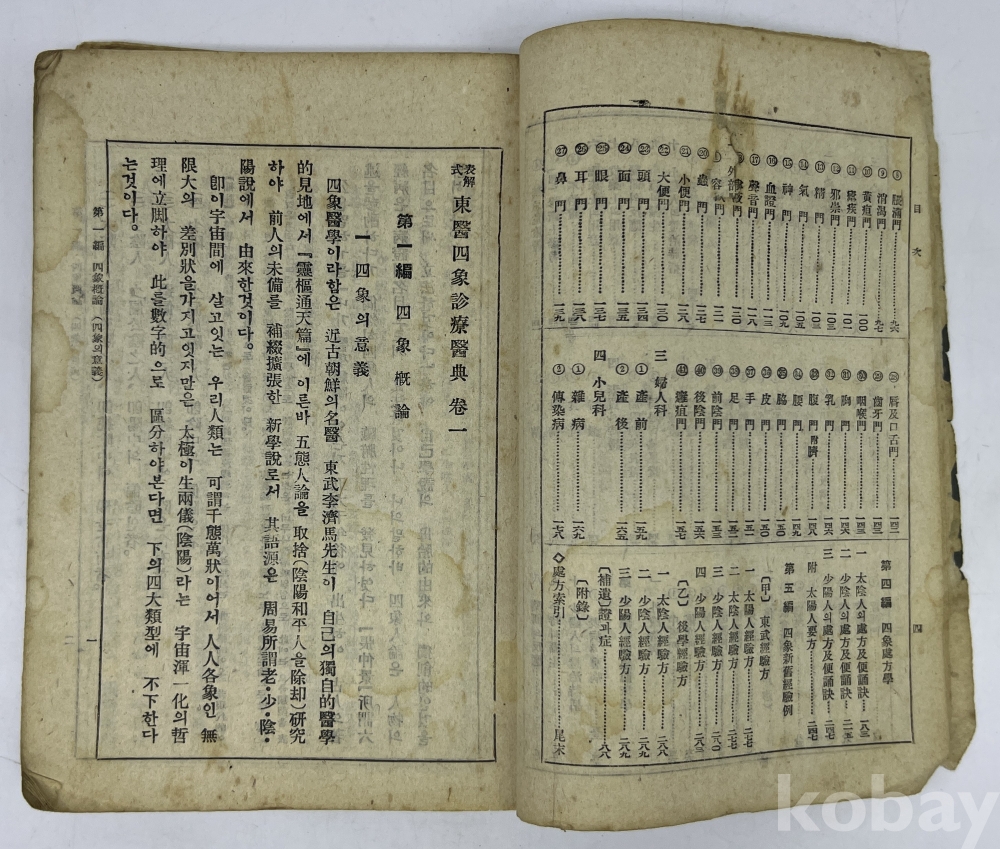 目次
四
⑧ 腰痛門
⑨ 消渴門
⑩ 黃疸門 一〇〇
⑪ 瘧疾門 一〇一
⑫ 邪祟門 一〇三
⑬ 精門
⑭ 氣門
⑮ 神門
⑯ 血證門
⑰ 聲音門
⑳ 蟲門 一二七
㉑ 小便門 一二八
㉒ 大便門
㉓ 頭門
㉔ 面門 一三五
㉕ 眼門 一三七
㉖ 耳門 一三八
㉗ 鼻門 一三九
唇及口舌門
齒牙門
咽喉門
胸門
乳門
腹門 附臍
腰門
脇門
皮門
手門
足門
前陰門
後陰門
雜疽門 一五七
三 婦人科
① 產前 一五九
② 產後 一六五
四 小兒科
① 雜病 一六九
⑤ 傳染病 一七八
第四編 四象處方學
一 太陰人의處方及便誦訣 一八三
二 少陰人의處方及便誦訣 二一五
三 少陽人의處方及便誦訣 二四七
附 太陽人要方
第五編 四象新舊經驗例
〔甲〕 東武經驗方
一 太陽人經驗方
二 太陰人經驗方 二七七
三 少陰人經驗方 二八〇
四 少陽人經驗方 二八三
〔乙〕 後學經驗方
一 太陰人經驗方
二 少陰人經驗方 二八九
三 少陽人經驗方 二八九
〔補遺〕 證과症
〔附錄〕
◇處方索引 尾末
表解式 東醫四象診療醫典 卷一
第一編 四象槪論
一 四象의意義
四象醫學이라함은 近古朝鮮의名醫 東武李濟馬先生이 自己의獨自的醫學
的見地에서 『靈樞通天篇』에 이른바 五態人論을 取捨(陰陽和平人을除却)硏究
하야 前人의未備를 補綴擴張한 新學說로서 其語源은 周易所謂老·少·陰·
陽說에서 由來한것이다。
卽이宇宙間에 살고잇는 우리人類는 可謂千態萬狀이어서 人人各象인 無
限大의 差別狀을가지고잇지만은 太極이生兩儀(陰陽)라는 宇宙渾一化의哲
理에立脚하야 此를數字的으로 區分하야본다면 下의四大類型에 不下한다
는것이다。
第一編 四象槪論 (四象의意義)
一
kobay